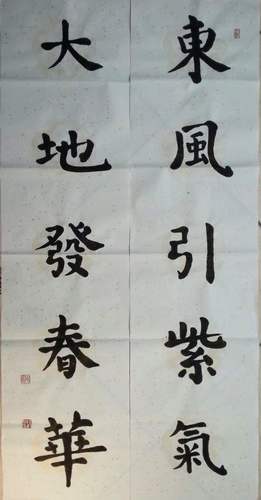 東風引紫氣
大地發春華